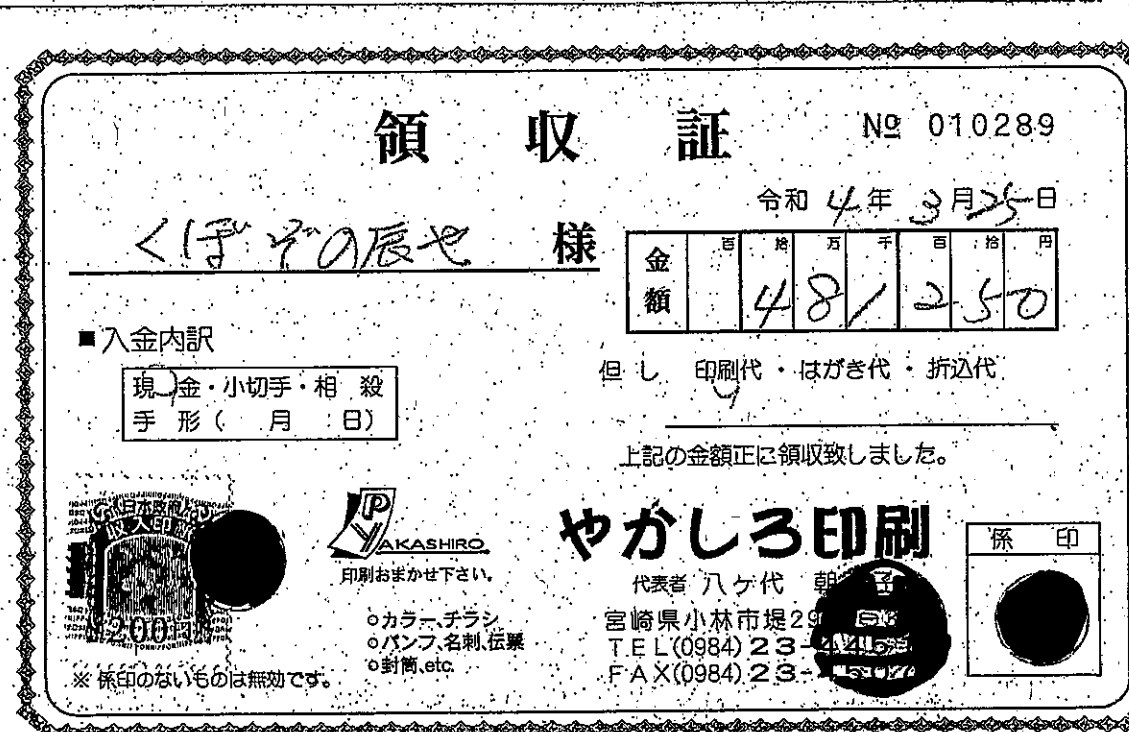 領収証 № 010289
令和 4年 3月25日
くぼぞの辰也 様
金額 百拾万千百拾円
481250
■入金内訳
現金・小切手・相殺
手形( 月 日)
但し 印刷代・はがき代・折込代
上記の金額正に領収致しました。
日本政府
収入印紙
200
PY
YAKASHIRO
印刷おまかせ下さい。
○カラー、チラシ
○パンフ、名刺、伝票
○封筒、etc.
※ 係印のないものは無効です。
やかしろ印刷
代表者 八ケ代 朝
宮崎県小林市堤29
TEL(0984)23-
FAX(0984)23-
係印